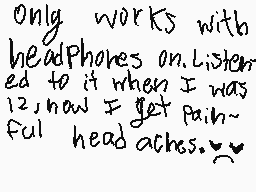 Only works with
headphones on. Listen-
ed to it when I was
12, now I get pain~
ful head aches.